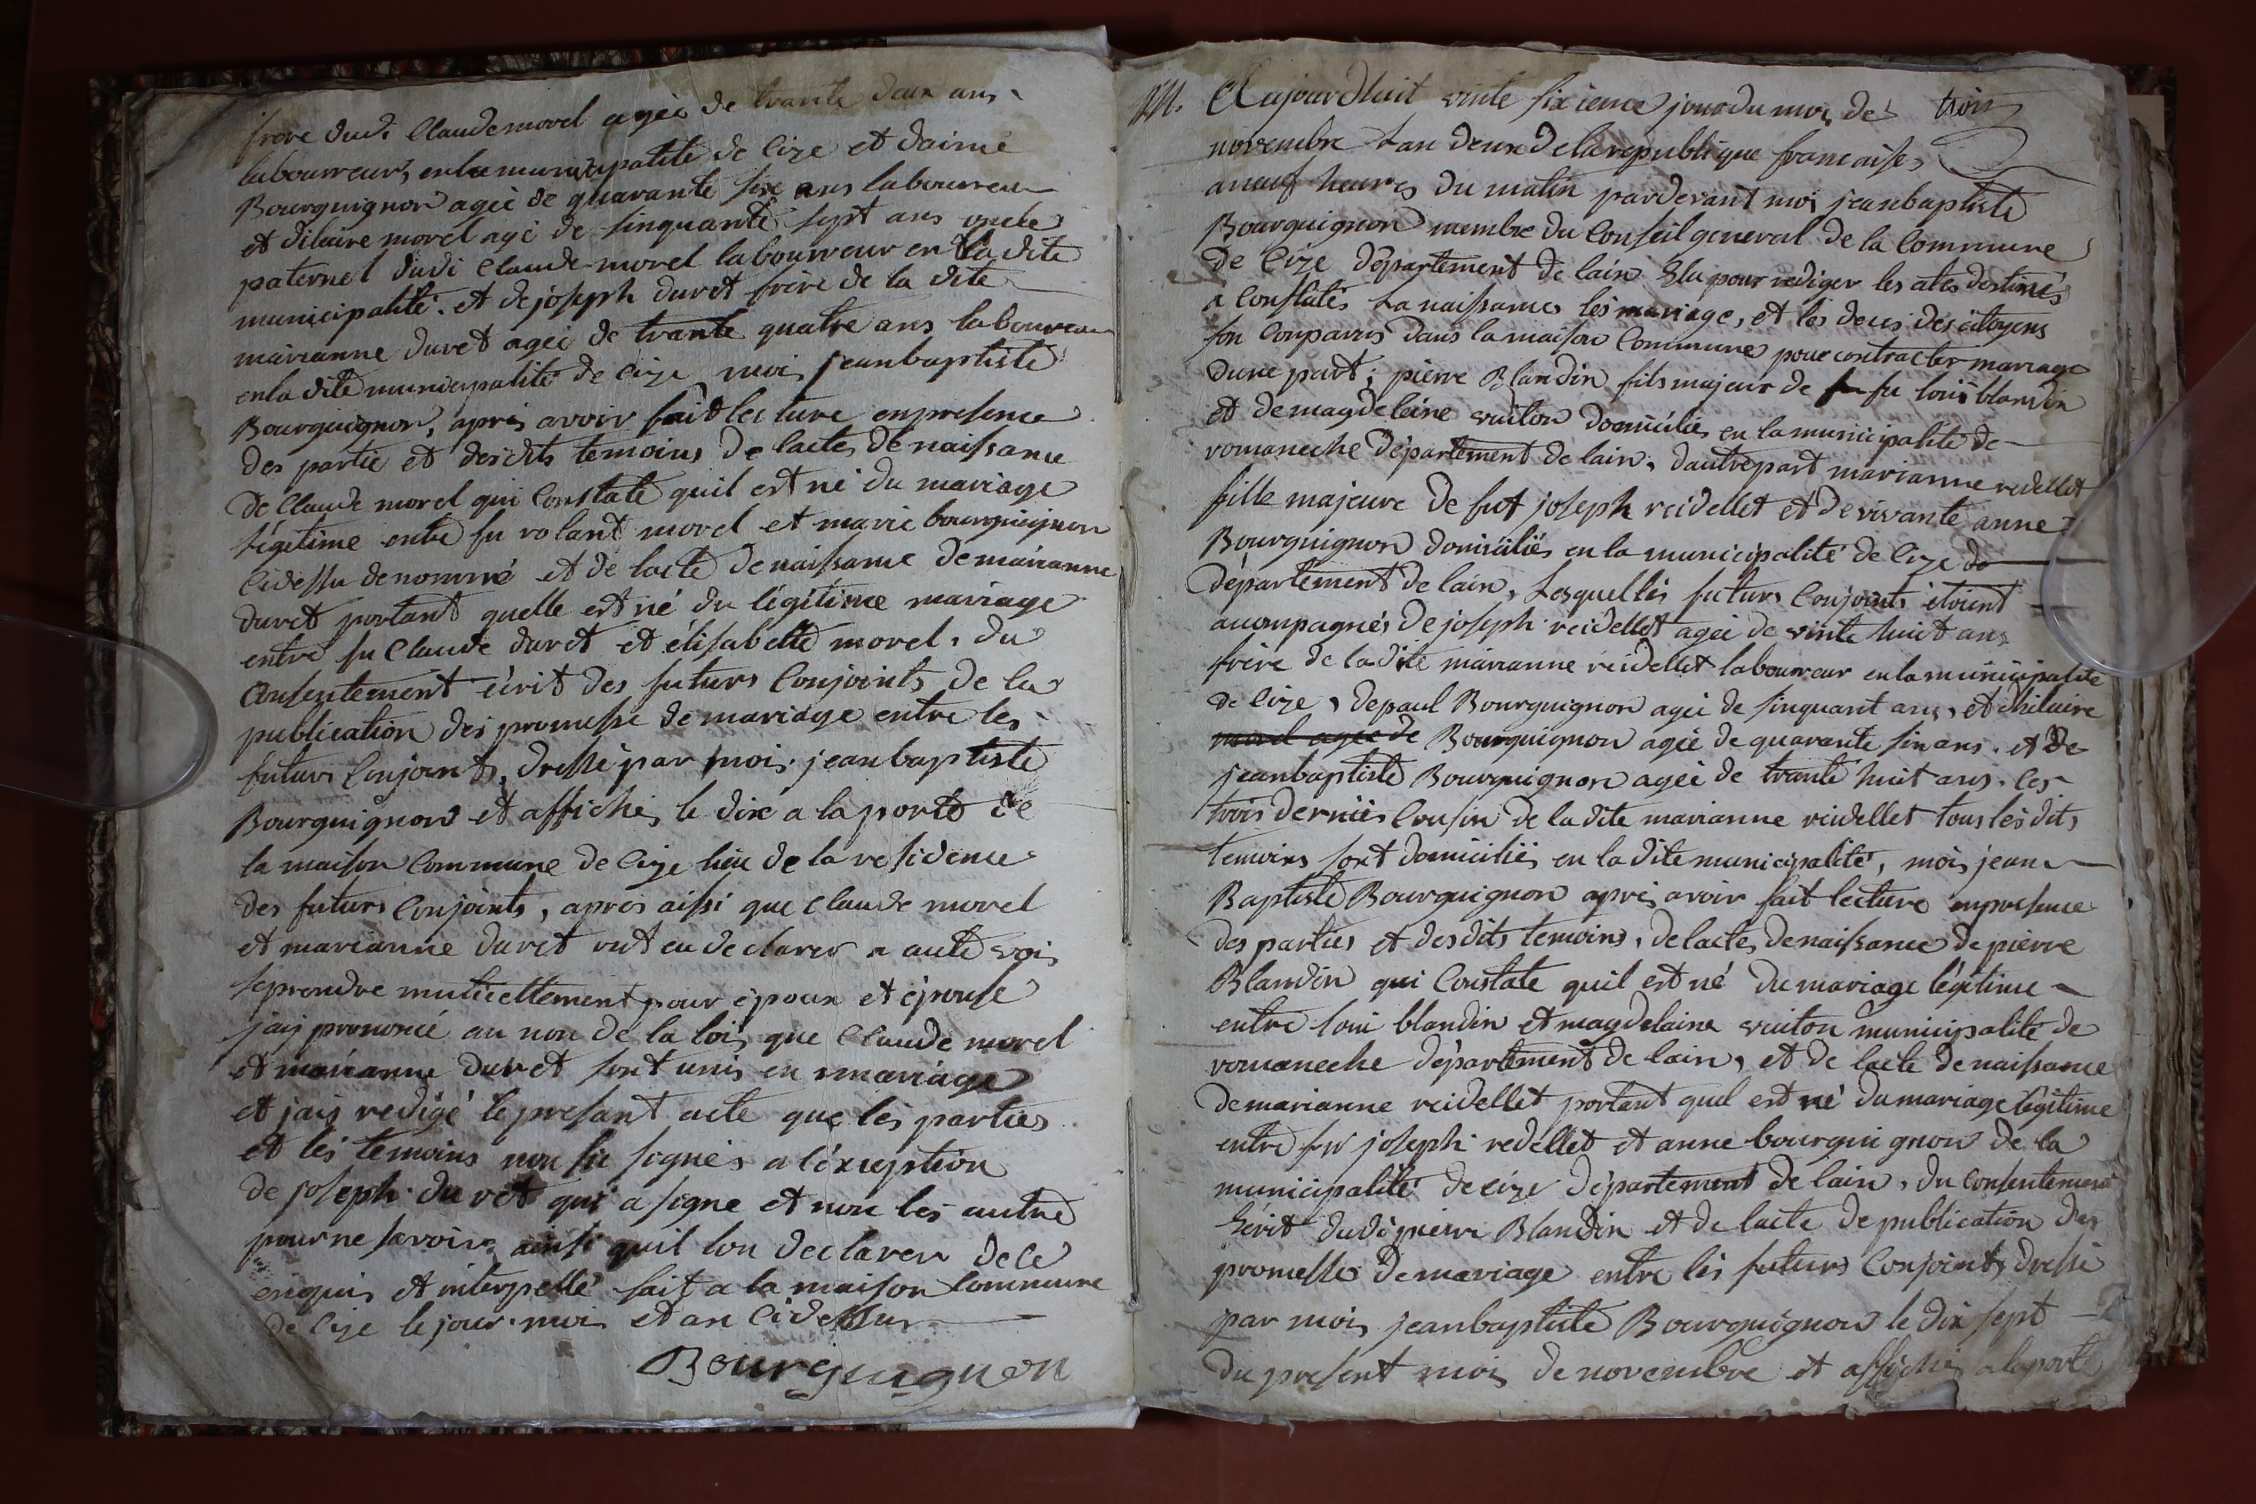 frere dudi Claude morel agée de trante deux ans
labourreur, en la municipalité de Cize et daimé
Bourguignon agée de quarante six ans laboureur
et dilaire morel agé de sinquante sept ans oncle
paternel dudi Claude morel labourreur en la dite
municipalité. et de joseph duret frère de la dite
marianne duret agée de trante quatre ans laboureur
en la dite municipalité de Cize moi jeanbaptiste
Bourguignon, apres avoir fait lecture enpresence
des partie et desdits temoins de lactes de naissance
de Claude morel qui Constate quil est né du mariage
légitime entre fu rolant morel et marie bourguignon
Cidessu denommé et de lacte de naissance de marianne
duret portant quelle est né du légitime mariage
entre fu Claude duret et élisabette morel, du
Consentement écrit des futurs Conjoints de la
publication des promesse de mariage entre les
futurs Conjoints, dressé par mois jeanbaptiste
Bourguignon et affichés le dix a la porte de
la maison Commune de Cize lieu de la residence
des futurs Conjoints, apres aissi que Claude morel
et marianne duret ont eu declarer a aute vois
seprendre mutuellement pour époux et épouse
jais prononcé au non de la lois que Claude morel
et marianne duret sont unis en mariage
et jais redigé le presant acte que les parties
et les temoins non su signés a léxception
de joseph duret qui a signe et non les autre
pour ne savoire ainsi quil lon declarer de ce
enquis et interpellé fait a la maison Commune
de Cize le jour mois et an Cidessus
Bourguignon
Aujourdhuit vinte sixieme jour du moi de trois
novembre lan deux de la republique francaises
a neuf heures du matin pardevant moi jeanbaptiste
Bourguignon membre du Conseil general de la Commune
de Cize département de lain Elu pour rediger les actes destinés
a Constatés La naissances les mariage, et les deces des citoyens
son Comparus dans la maison Commune pour contracter mariage
dune part; pierre Blandin fils majeur de fu fu loui blandin
et de magdeleine vuiton domiciliés en la municipalite de
romaneche département de lain, dautre part marianne redellet
fille majeure de fut joseph reidellet et de vivante anne
Bourguignon domiciliés en la municipalité de Cize de
département de lain, Lesquelles futurs Conjoints étoient
acompagnés de joseph reidellet agée de vinte huit ans
frère de la dite marianne reidellet labourreur en la municipalité
de Cize, de paul Bourguignon agée de sinquant ans, et dhilaire
morel agée de Bourguignon agée de quarante sin ans. et de
jeanbaptiste Bourguignon agée de trante huit ans. les
trois derniés Cousin de la dite marianne reidellet tous les dits
temoins sont domiciliés en la dite municipalité, mois jean
Baptiste Bourguignon apris avoir fait lecture enpresence
des parties et desdits temoins, de lactes denaissance de pierre
Blandin qui Constate quil est né du mariage légitime
entre loui blandin et magdelaine vuiton municipalité de
romaneche département de lain, et de lacte de naissance
de marianne reidellet portant quel est né du mariage légitime
entre fu joseph redellet et anne bourguignon de la
municipalité de Cize département de lain, du Consentement
Ecrit dudi pierre Blandin et de lacte de publication des
promesses de mariage entre les futurs Conjoints dressé
par mois jeanbaptiste Bourguignon le dix sept
du present mois de novembre et affichés a la porte